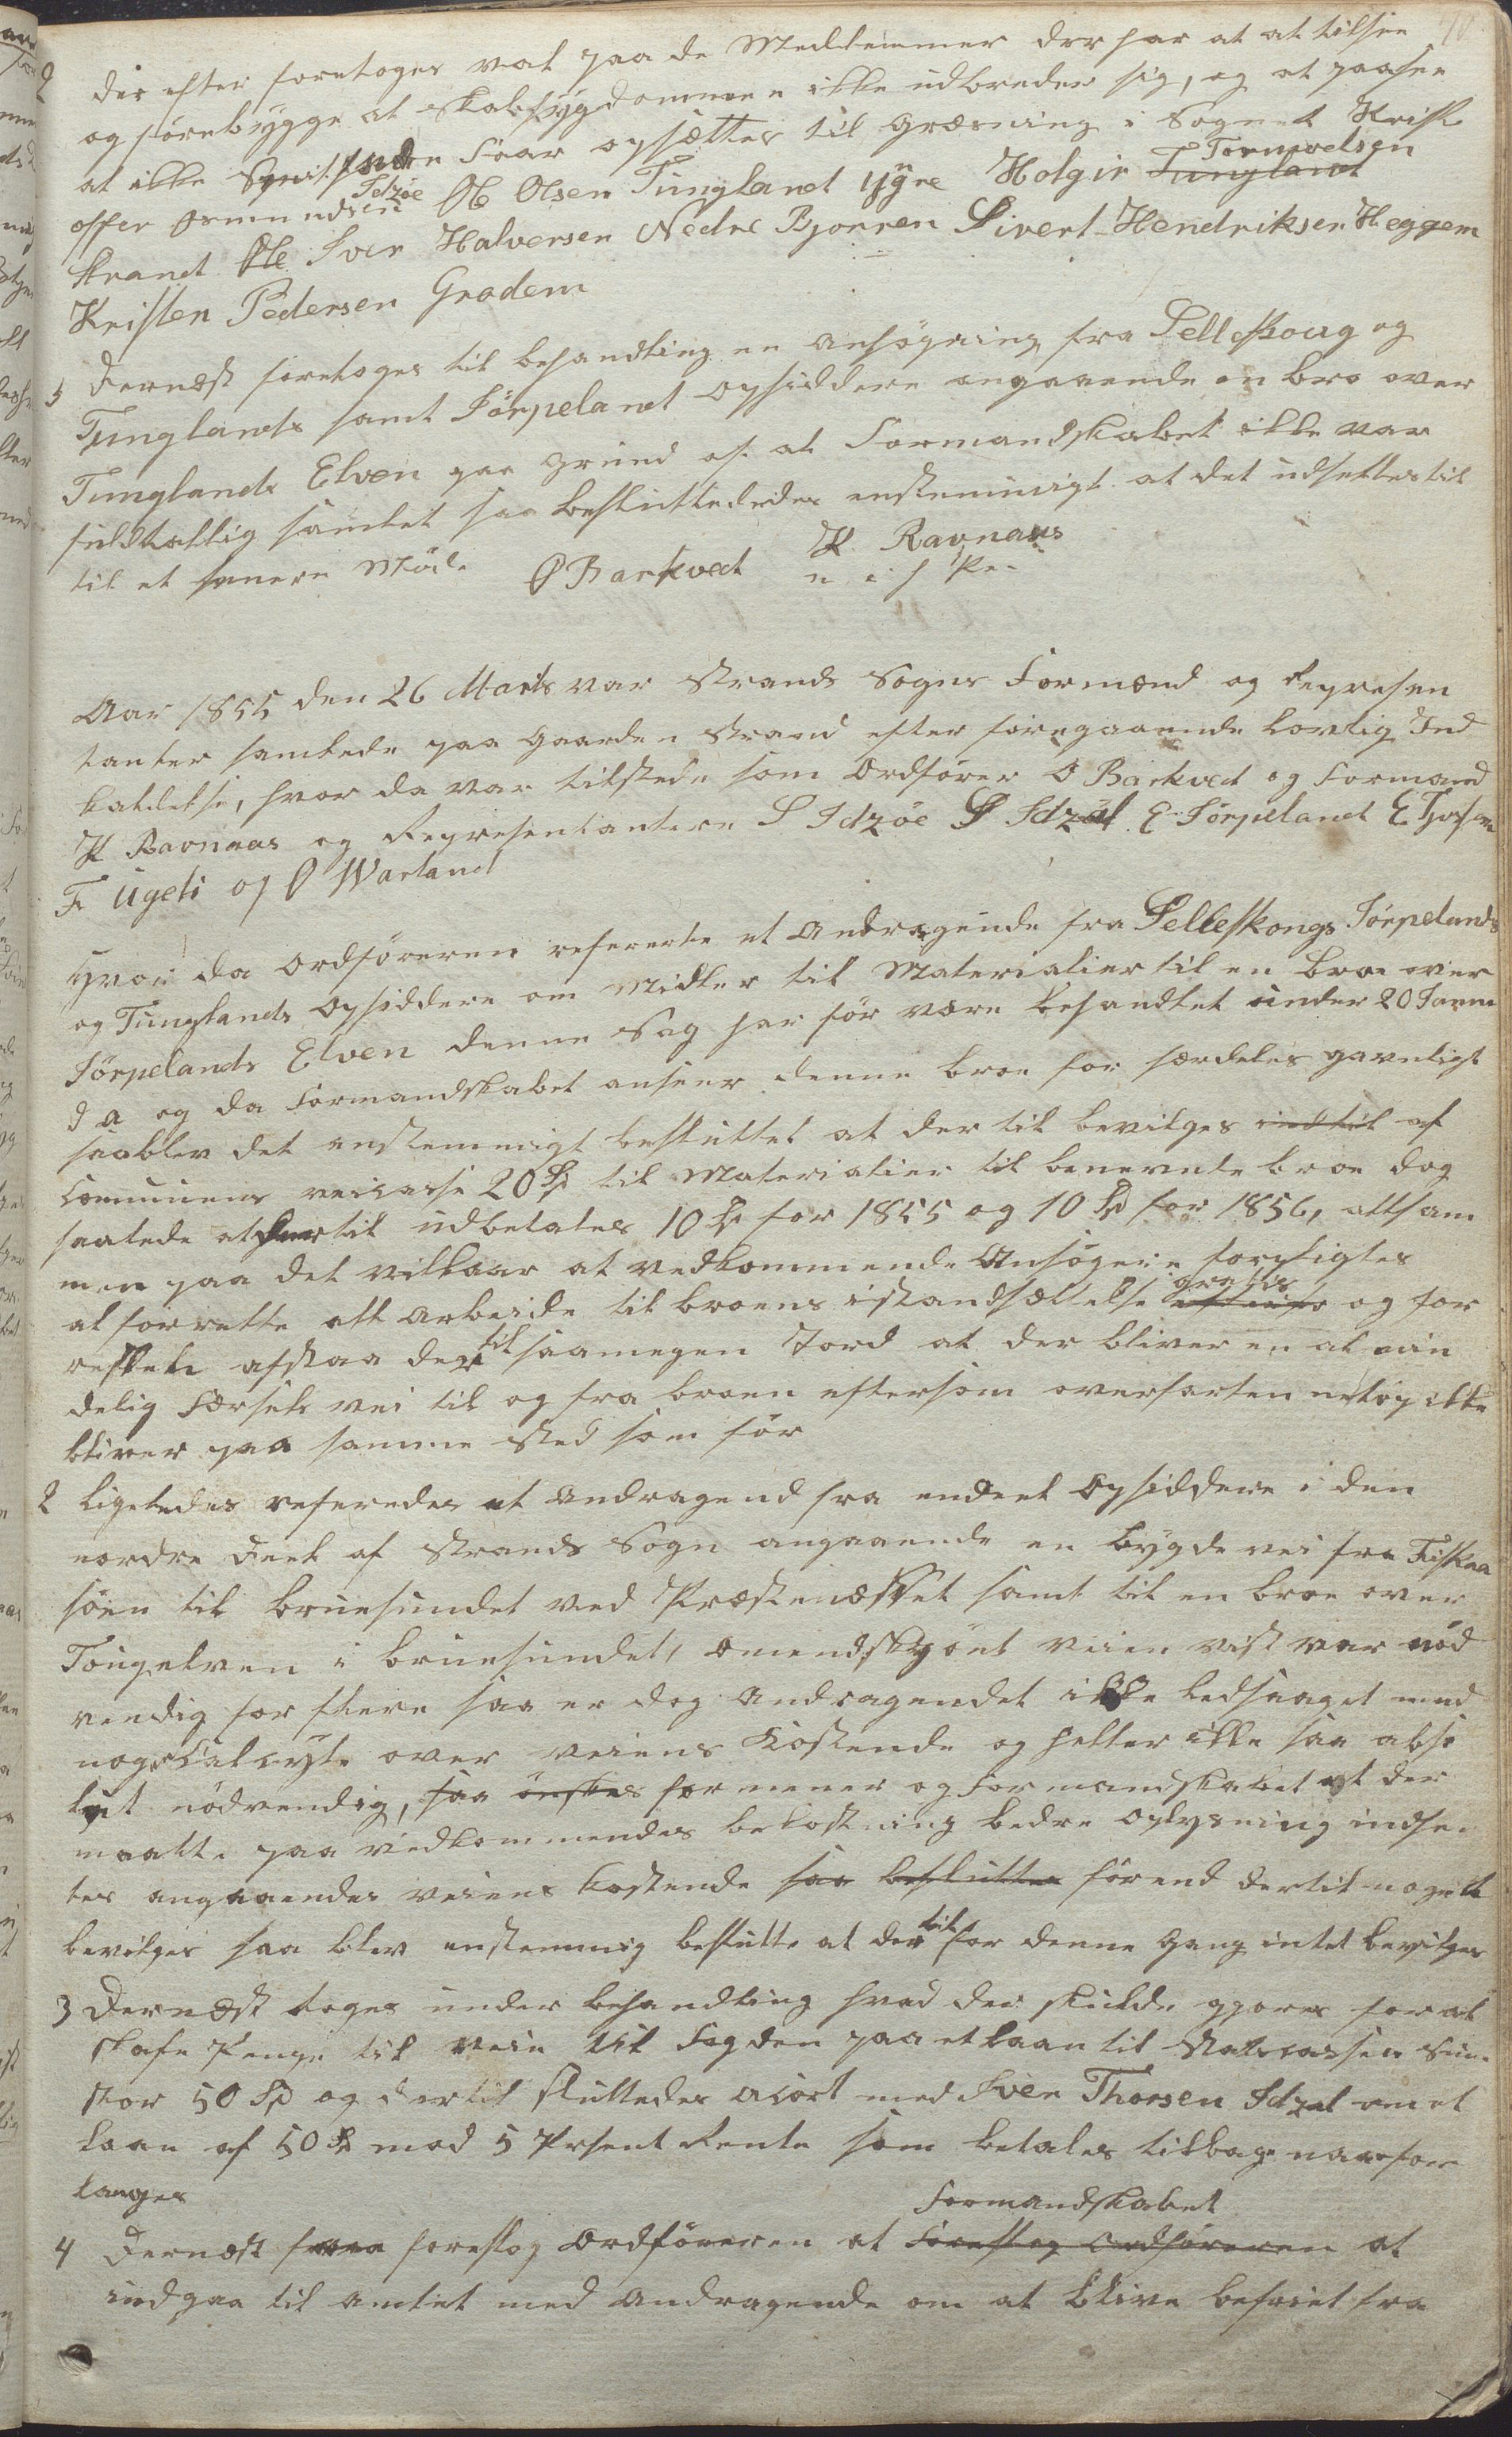 2 der efter foretoges valt paa de Medlemmer der har at at tilsee
og förebygge at Skabsÿgdommen ikke udbreder sig, og at paasee
at ikke Faar opsættes til Græsning i Sognet Krist
offer Osmundsen Idzöe Ole Olsen Tungland ygre Holgir Tungland Tormodsen
Strand Ole Iver Halversen Nedre Bjorren Sivert Hendriksen Heggem
Kristen Pedersen Grodem
3 Dernæst foretoges til behandling en Ansögning fra Selleskoug og
Tunglands samt Jörpeland opsiddere angaaende en bro over
Tunglands Elven paa Grund af at Formandskabet ikke var
fuldtallig samlet saa besluttededes enstemmigt at det udsettes til
til et senere Möde Ø Barkved K Ravnaas
Aar 1855 den 26 Marts var Strands Sogns Formænd og Represen
tanter samlede paa Gaarden Strand efter foregaaende lovlig Ind
kaldelse, hvor da var tilstede som Ordförer O Barkved og Formand
K Ravnaas og Representantere S Idzöe S Idzal E Jörpeland E Tjosem
F Ugeli og O Warland
Hvor da Ordföreren refererte et Andragende fra Selleskougs Jörpelands
og Tunglands Opsiddere om Midler til Materialier til en broe over
Jörpelands Elven denne Sag har för være behandlet under 20 Janua
d a og da Formandskabet anseer denne broe for særdeles gavnligt
saablev det enstemmigt besluttet at der til bevilges indtil af
Comunens veicasse 20 Spd til Materialier til benevnte broe dog
saaledes at dertil udbetales 10 Spd for 1855 og 10 Spd for 1856, altsam
men paa det vilkaar at vedkommende Ansögere forpligtes
at forrette alt Arbeide til broens istandsættelse gratis og for
resten afstaa dertil saamegen Jord at der bliver en al min
delig Færsels vei til og fra broen eftersom overfarten netop ikke
bliver paa samme Sted som för
2 Ligeledes referedes et Andragend fra endeel Opsiddere i den
nordre Deel af Strands Sogn angaaende en bygdevei fra Fiskaa
söen til bruesundet ved Præstenæsset samt til en broe over
Tougelven i bruesundet, Omendskjönt veien vist var nöd
vendig for flere saa er dog Andragendet ikke ledsaget med
noge Calcyle over veiens Kostende og heller ikke saa abso
lut nödvendig, saa önskes formener og Formandskabet at der
maatte paa vedkommendes bekostning bedre oplysning indse
tes angaaendes veiens Kostende saa beslutter förend dertil noget
bevilges saa blev enstemmig beslutte at dertil for denne Gang intet bevilges
3 Dernæst toges under behandling hvad der skulde gjöres for at
skafe Penge til veie til Fogden paa et laan til Statscassen
stor 50 Spd og dertil sluttedes acort med Sven Thorsen Idzal om et
laan af 50 Spd mod 5 Prsent Rente som betales tilbage naar for
langes
4 Dernæst foreslog Ordföreren at Foreslog Ordföreren Formandskabet at
indgaa til Amtet med Andragende om at blive befriet fra